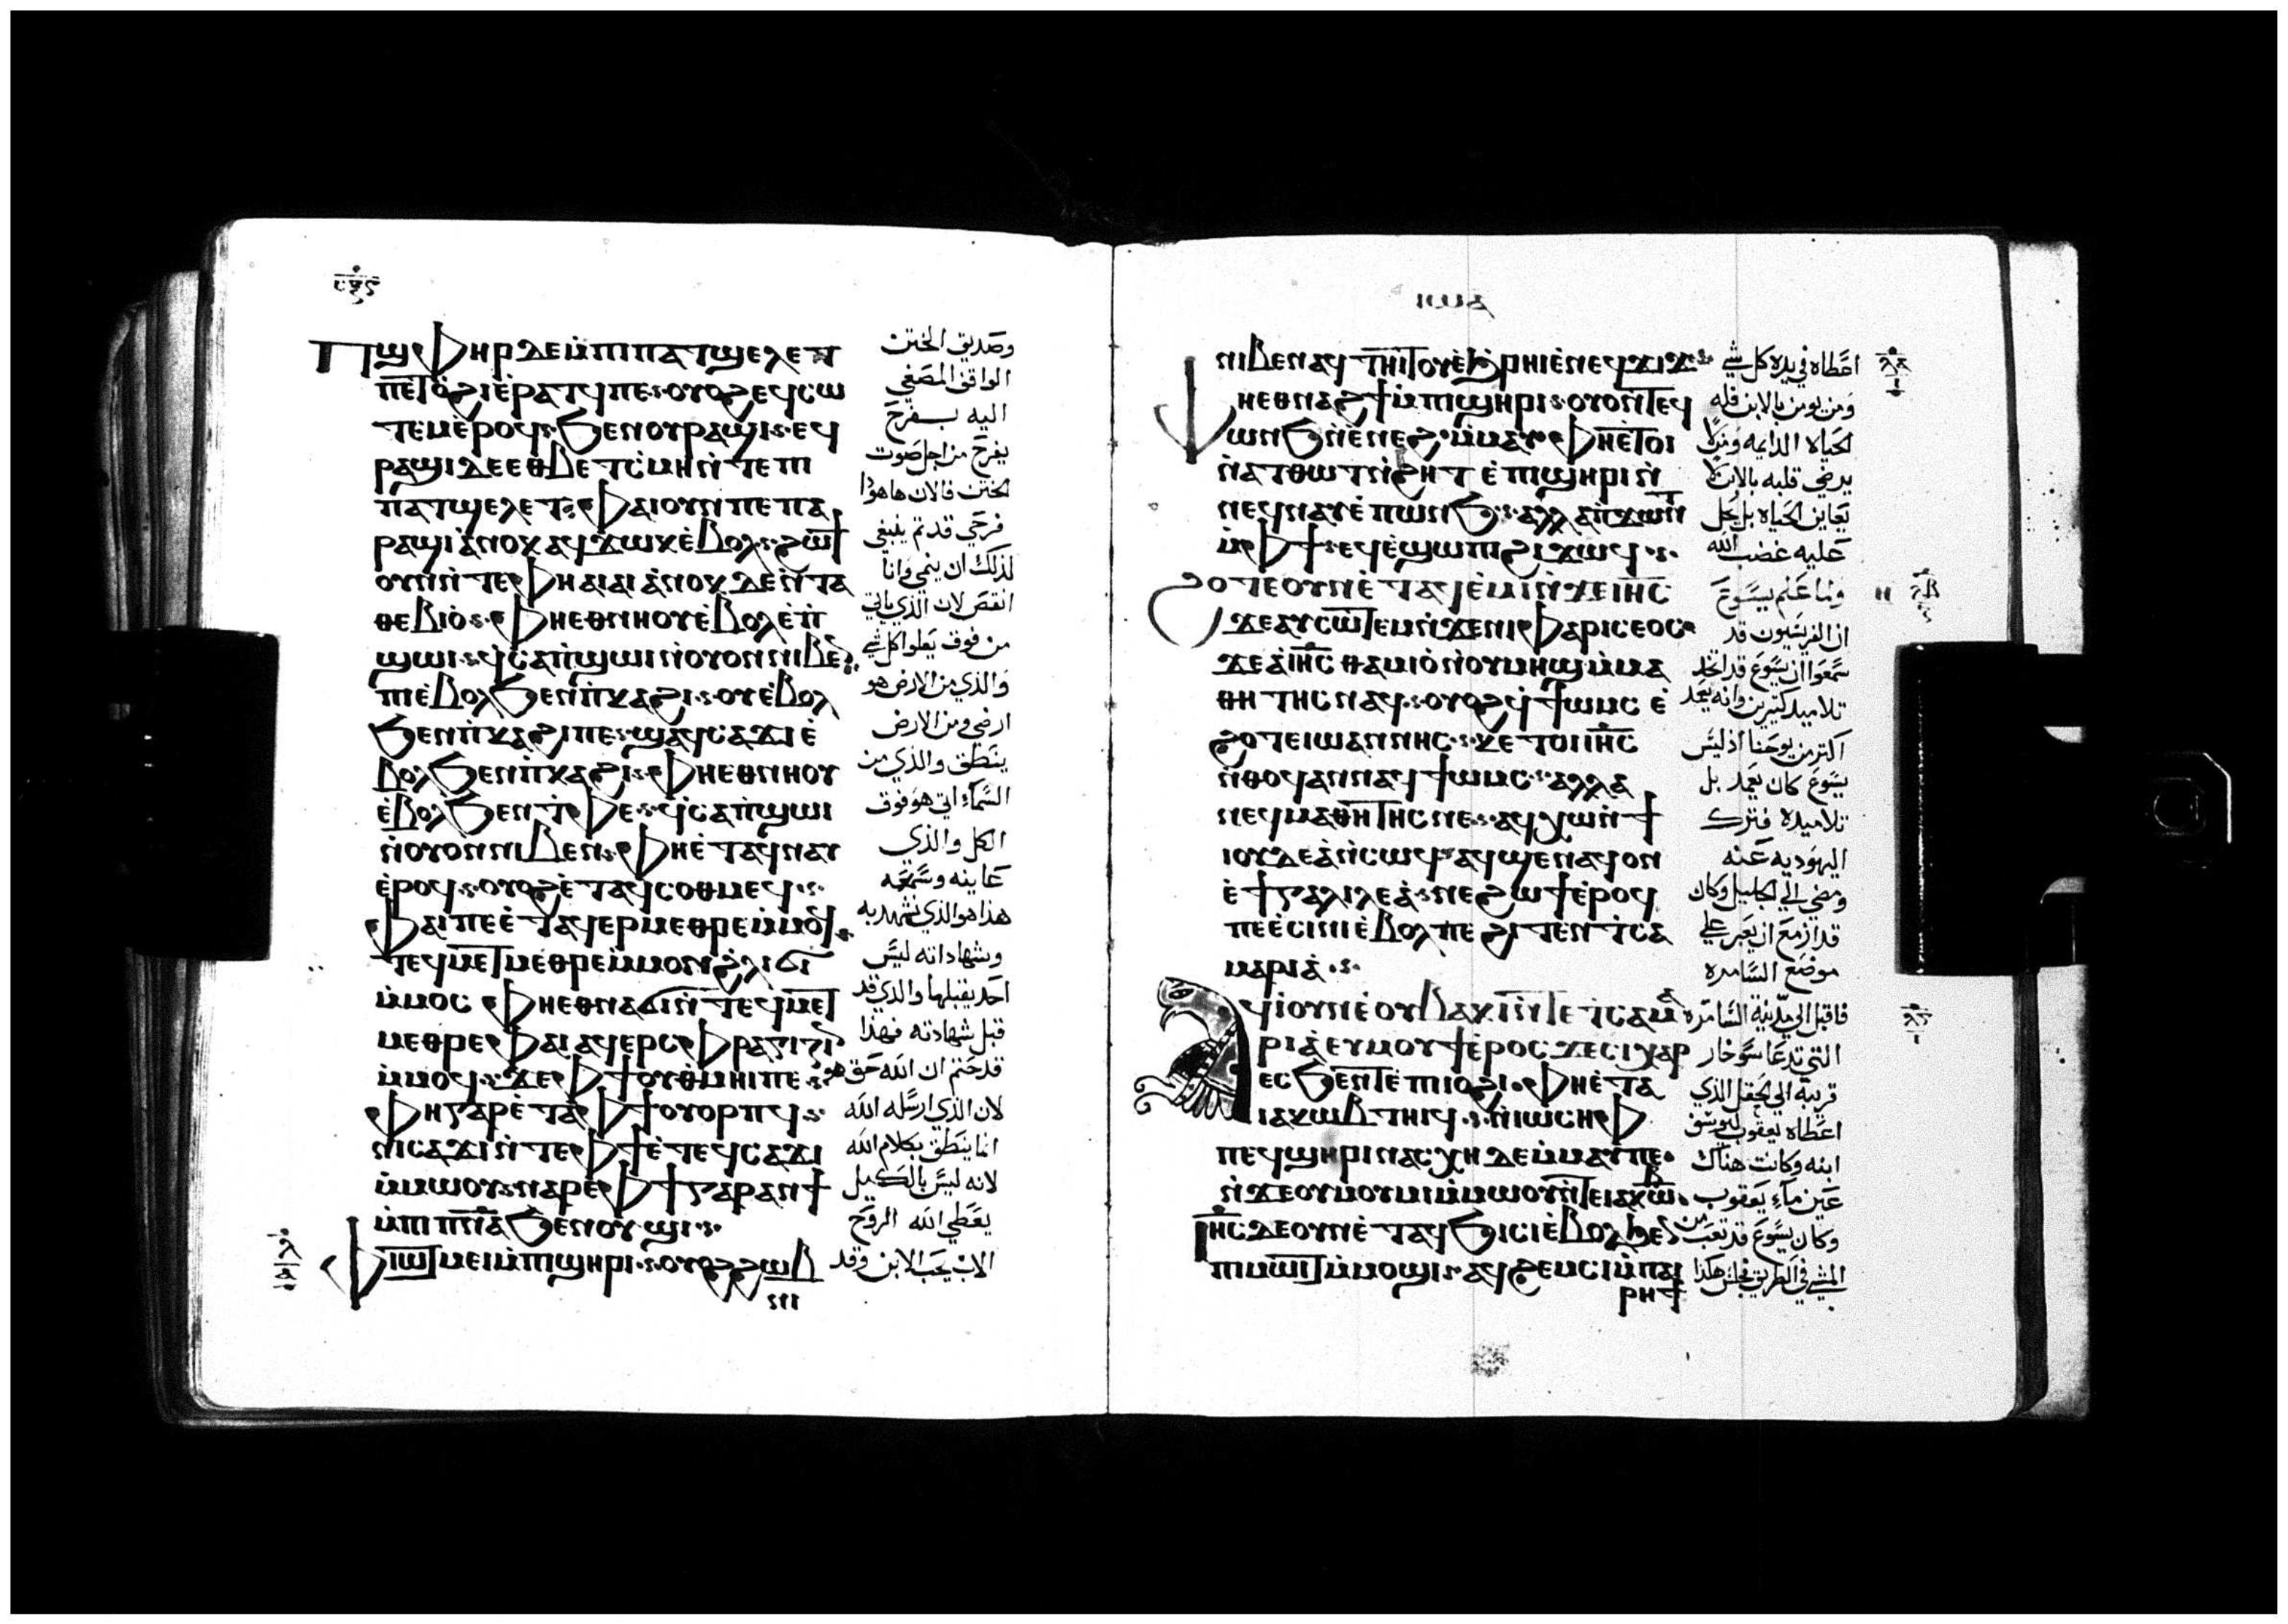 ⲡϣⲫⲏⲣ ⲇⲉ ⲙ̀ⲡⲓⲡⲁⲧϣⲉⲗⲉⲧ
ⲡⲉⲧⲟ̀ϩⲓ ⲉ̀ⲣⲁⲧϥ ⲡⲉ· ⲟⲩⲟϩ ⲉϥⲥⲱ
ⲧⲉⲙ ⲉ̀ⲣⲟϥ· ϧⲉⲛ ⲟⲩⲣⲁϣⲓ· ⲉϥ
ⲣⲁϣⲓ ⲇⲉ ⲉⲑⲃⲉ ⲧⲥ̀ⲙⲏ ⲛ̀ⲧⲉ ⲡⲓ
ⲡⲁⲧϣⲉⲗⲉⲧ· ⲫⲁⲓ ⲟⲩⲛ ⲡⲉ ⲡⲁ
ⲣⲁϣⲓ ⲁ̀ⲛⲟⲕ ⲁϥϫⲱⲕ ⲉ̀ⲃⲟⲗ· ϩⲱϯ
ⲟⲩⲛ ⲛ̀ⲧⲉ ⲫⲏ ⲁⲓⲁⲓ ⲁ̀ⲛⲟⲕ ⲇⲉ ⲛ̀ⲧⲁ
ⲑⲉⲃⲓⲟ̀· ⲫⲏⲉⲑⲛⲏⲟⲩ ⲉ̀ⲃⲟⲗ ⲉ̀ⲡ̀
ϣⲱⲓ· ϥ̀ⲥⲁⲡ̀ϣⲱⲓ ⲛ̀ⲟⲩⲟⲛ ⲛⲓⲃⲉ
ⲡⲓⲉ̀ⲃⲟⲗ ϧⲉⲛ ⲡ̀ⲕⲁϩⲓ· ⲟⲩⲉ̀ⲃⲟⲗ
ϧⲉⲛ ⲡ̀ⲕⲁϩⲓ ⲡⲉ· ϣⲁϥⲥⲁϫⲓ ⲉ̀
ⲃⲟⲗ ϧⲉⲛ ⲡ̀ⲕⲁϩⲓ· ⲫⲏⲉⲑⲛⲏⲟⲩ
ⲉ̀ⲃⲟⲗ ϧⲉⲛ ⲧ̀ⲫⲉ· ϥ̀ⲥⲁⲡ̀ϣⲱⲓ
ⲛ̀ⲟⲩⲟⲛ ⲛⲓⲃⲉⲛ· ⲫⲏⲉ̀ⲧⲁϥⲛⲁⲩ
ⲉ̀ⲣⲟϥ· ⲟⲩⲟϩ ⲉ̀ⲧⲁϥⲥⲟⲑⲙⲉϥ·
ⲫⲁⲓ ⲡⲉ ⲉ̀ⲧⲁϥⲉⲣⲙⲉⲑⲣⲉ ⲙ̀ⲙⲟϥ·
ⲧⲉϥⲙⲉⲧⲙⲉⲑⲣⲉ ⲙ̀ⲙⲟⲛ ϩ̀ⲗⲓ ϭⲓ
ⲙ̀ⲙⲟⲥ ⲫⲏⲉⲑⲛⲁϭⲓ ⲛ̀ⲧⲉϥⲙⲉⲧ
ⲙⲉⲑⲣⲉ ⲫⲁⲓ ⲁϥⲉⲣⲥⲫⲣⲁⲅⲓⲍⲓⲛ
ⲙ̀ⲙⲟϥ· ϫⲉ ⲫϯ ⲟⲩⲑ̀ⲙⲏⲓ ⲡⲉ·
ⲫⲏ ⲅⲁⲣ ⲉ̀ⲧⲁ ⲫϯ ⲟⲩⲟⲣⲡϥ·
ⲛⲓⲥⲁϫⲓ ⲛ̀ⲧⲉ ⲫϯ ⲉ̀ⲧⲉϥⲥⲁϫⲓ
ⲙ̀ⲙⲱⲟⲩ· ⲛⲁⲣⲉ ⲫϯ ⲅⲁⲣ ⲁⲛ ϯ
ⲙ̀ⲡⲓⲡ̅ⲛ̅ⲁ̅ ϧⲉⲛ ⲟⲩϣⲓ·
ⲫⲓⲱⲧ ⲙⲉⲓ ⲙ̀ⲡϣⲏⲣⲓ· ⲟⲩⲟϩ ϩⲱⲃ
وصديق الختن
الواقف المصغي
اليه بفرح
يفرح من اجل صوت
الختن فالان ها هوذا
فرحي قد تم ينبغي
لذلك ان ينمي وانا
انقص لان الذي ياتي
من فوق يعلوا كل شي
والذي من الارض هو
ارضي ومن الارض
ينطق والذي من
السماء اتي هو فوق
الكل والذي
عاينه وسمعه
هذا هو الذي شهد به
وشهاداته ليس
احد يقبلها والذي قد
قبل شهادته فهذا
قد ختم ان الله حق هو
لان الذي ارسله الله
انما ينطق بكلام الله
لانه ليس بالكيل
يعطي الله الروح
الاب يحب الابن وقد
ⲓⲱⲁ
ⲛⲓⲃⲉⲛ ⲁϥⲧⲏⲓⲧⲟⲩ ⲉ̀ϧ̀ⲣⲏⲓ ⲉ̀ⲛⲉϥϫⲓϫ·
ⲫⲏⲉⲑⲛⲁϩϯ ⲙ̀ⲡϣⲏⲣⲓ· ⲟⲩⲟⲛⲧⲉϥ
ⲱⲛϧ ⲛ̀ⲉ̀ⲛⲉϩ ⲙ̀ⲙⲁⲩ· ⲫⲏⲉ̀ⲧⲟⲓ
ⲛ̀ⲁⲧⲑⲱⲧ ⲛ̀ϩⲏⲧ ⲉ̀ⲡϣⲏⲣⲓ ⲛ̀
ⲛⲉϥⲛⲁⲩ ⲉ̀ⲡⲱⲛϧ· ⲁⲗⲗⲁ ⲡ̀ϫⲱⲛⲧ
ⲙ̀ⲫϯ· ⲉϥⲉ̀ϣⲱⲡⲓ ϩⲓϫⲱϥ·
ϩⲟⲧⲉ ⲟⲩⲛ ⲉ̀ⲧⲁϥⲉ̀ⲙⲓ ⲛ̀ϫⲉ ⲓⲏ̅ⲥ̅
ϫⲉ ⲁⲩⲥⲱⲧⲉⲙ ⲛ̀ϫⲉ ⲛⲓⲫⲁⲣⲓⲥⲉⲟⲥ
ϫⲉ ⲁ̀ ⲓⲏ̅ⲥ̅ ⲑⲁⲙⲓⲟ̀ ⲛ̀ⲟⲩⲙⲏϣ ⲙ̀ⲙⲁ
ⲑⲏⲧⲏⲥ ⲛⲁϥ· ⲟⲩⲟϩ ϥ̀ϯⲱⲙⲥ ⲉ̀
ϩⲟⲧⲉ ⲓⲱⲁⲛⲛⲏⲥ· ⲕⲉⲧⲟⲓ ⲓⲏ̅ⲥ̅
ⲛ̀ⲑⲟϥ ⲁⲛ ⲛⲁϥϯⲱⲙⲥ· ⲁⲗⲗⲁ
ⲛⲉϥⲙⲁⲑⲏⲧⲏⲥ ⲛⲉ· ⲁϥⲭⲱ ⲛ̀ϯ
ⲓⲟⲩⲇⲉⲁ̀ ⲛ̀ⲥⲱϥ· ⲁϥϣⲉⲛⲁϥ ⲟⲛ
ⲉ̀ϯⲅⲁⲗⲓⲗⲉⲁ̀· ⲛⲉ ϩⲱϯ ⲉ̀ⲣⲟϥ
ⲡⲉ ⲉ̀ⲥⲓⲛⲓ ⲉ̀ⲃⲟⲗ ⲡⲉ ϩⲓⲧⲉⲛ ⲧ̀ⲥⲁ
ⲙⲁⲣⲓⲁ̀·
ⲁϥⲓ̀ ⲟⲩⲛ ⲉ̀ⲟⲩⲃⲁⲕⲓ ⲛ̀ⲧⲉ ⲧ̀ⲥⲁⲙⲁ
ⲣⲓⲁ̀ ⲉⲩⲙⲟⲩϯ ⲉ̀ⲣⲟⲥ ϫⲉ ⲥⲓⲭⲁⲣ
ⲉⲥϧⲉⲛⲧ ⲉ̀ⲡⲓⲓⲟϩⲓ· ⲫⲏⲉ̀ⲧⲁ
ⲓⲁⲕⲱⲃ ⲧⲏⲓϥ· ⲛ̀ⲓⲱⲥⲏⲫ
ⲡⲉϥϣⲏⲣⲓ ⲛⲁⲥⲭⲏ ⲇⲉ ⲙ̀ⲙⲁⲩ ⲡⲉ·
ⲛ̀ϫⲉ ⲟⲩⲙⲟⲩⲙⲓ ⲙ̀ⲙⲱⲟⲩ ⲛ̀ⲧⲉ ⲓⲁⲕⲱⲃ·
ⲓⲏ̅ⲥ̅ ⲇⲉ ⲟⲩⲛ ⲉ̀ⲧⲁϥϧⲓⲥⲓ ⲉ̀ⲃⲟⲗ ϧⲉⲛ
ⲡⲓⲙⲱⲓⲧ ⲙ̀ⲙⲟϣⲓ· ⲁϥϩⲉⲙⲥⲓ ⲙ̀ⲡⲁⲓ
ⲣⲏϯ
اعطاه في يده كل شي
ومن يومن بالابن فله
الحياه الدايمه ومن لا
يرضي قلبه بالابن لا
يعاين الحياه بل يحل
عليه غضب الله
ولما علم يسوع
ان الفريسيون قد
سمعوا ان يسوع قد اتخد
تلاميد كتيرين وانه يعمد
اكتر من يوحنا اذ ليس
يسوع كان يعمد بل
تلاميده فترك
اليهوديه عنه
ومضي الي الجليل وكان
قد ازمع ان يعبر علي
موضع السامره
فاقبل الي مدينة السامره
التي تدعا سوخار
قريبة الي الحقل الذي
اعطاه يعقوب ليوسف
ابنه وكانت هناك
عين ماء يعقوب
وكان يسوع قد تعب من
المشي في الطريق فجلس هكذا